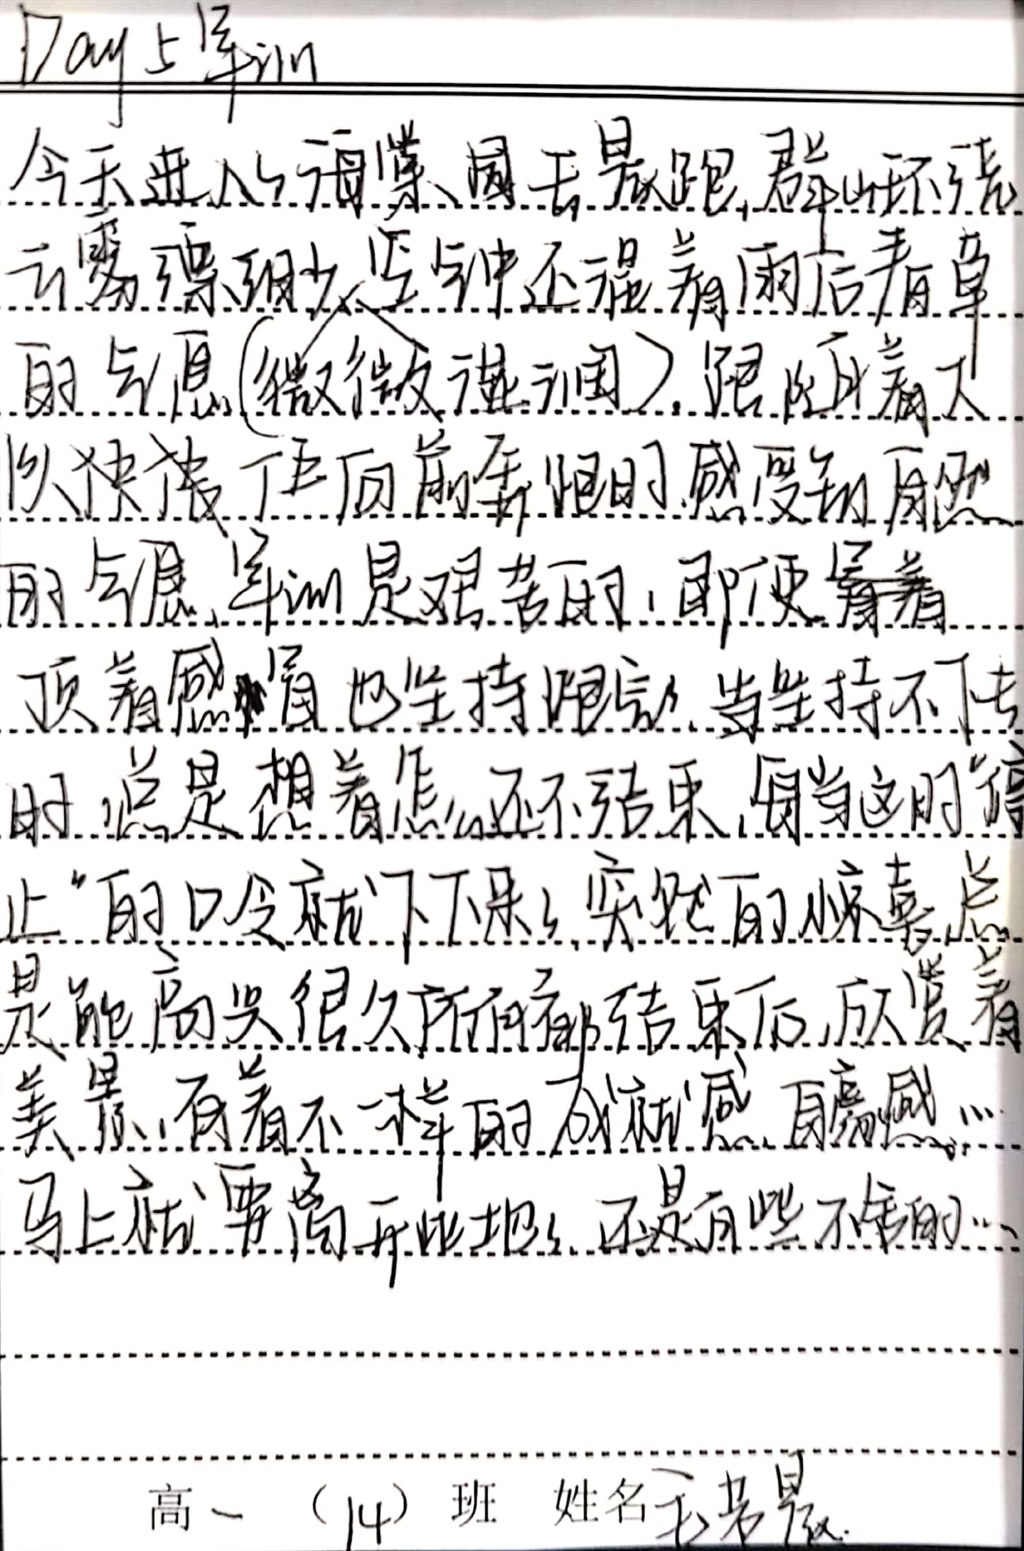 Day 5 军训
今天进入海棠园去晨跑,群山环绕
云雾飘缈,空气中还混着雨后青草
的气息(微微湿润).跟随着大
队快速在向前奔跑时,感受到自然
的气息,军训是艰苦的,即便冒着
顶着感冒也坚持跑完,当坚持不下去
时,总是想着怎么还不结束,每当这时"停
止"的口令就下下来了,突然的惊喜总
是能高兴很久所有都结束后,欣赏着
美景,有着不一样的成就感,自豪感…
马上就要离开此地了,还是有些不舍的…
高一(14)班 姓名 王 晨